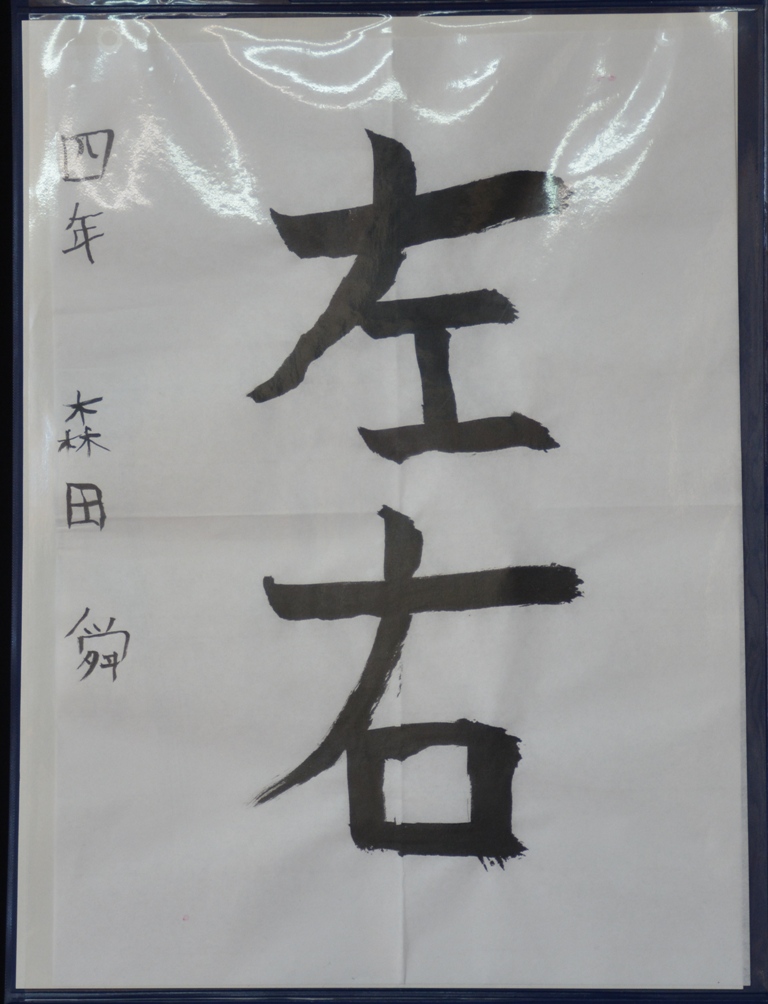 左右
四年 森田 舜